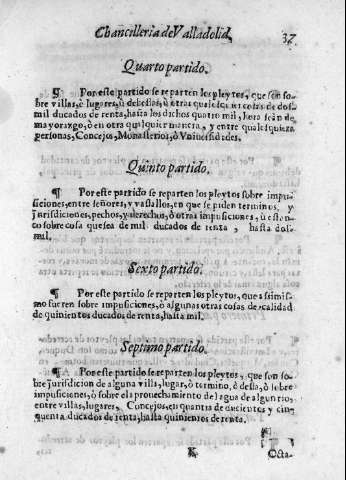 Chancilleria de Valladolid. 37
Quarto partido.
¶ Por este partido se reparten los pleytos, que son so-
bre villas, ò lugares, ù dehesas, ù otras qualesquier cosas de dos
mil ducados de renta, hasta los dichos quatro mil, hora sean de
mayorazgo, ò en otra qualquier manera, y entre qualesquiera
personas, Concejos, Monasterios, ò Vniuersidades.
Quinto partido.
¶ Por este partido se reparten los pleytos sobre impu-
siciones, entre señores, y vassallos, en que se piden terminos, y
jurisdiciones, pechos, y derechos, ò otras impusiciones, ù censo
no sobre cosa que sea de mil ducados de renta, hasta dos
mil.
Sexto partido.
¶ Por este partido se reporten los pleytos, que assimis-
mo fueren sobre impusiciones, ò algunas otras cosas de calidad
de quinientos ducados de renta, hasta mil.
Septimo partido.
¶ Por este partido se reparten los pleytos, que son so-
bre jurisdicion de alguna villa, lugar, ò termino, ò dessa, ò sobre
impusiciones, ò sobre el aprouechamiento del agua de algun rio,
entre villas, lugares, Concejos, en quantia de ducientos y cin-
quenta ducados de renta, hasta quinientos de renta.
K Octa-